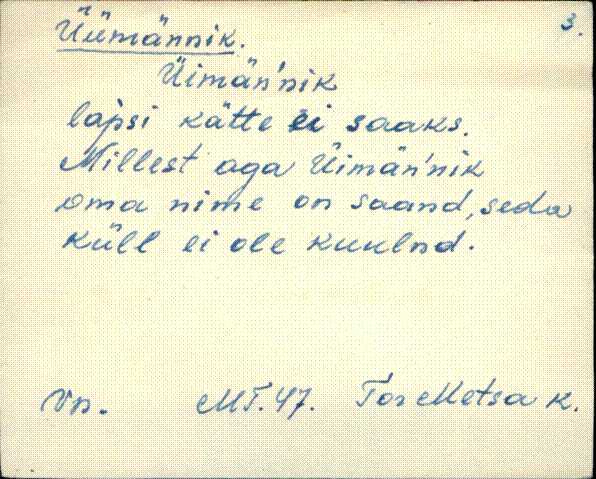 3.
Üümännik.
Üimän'nik
lapsi kätte ei saaks.
Millest aga Üimän'nik
oma nime on saand, seda
küll ei ole kuulnd.
Vn. MT. 47. Tor Metsa k.